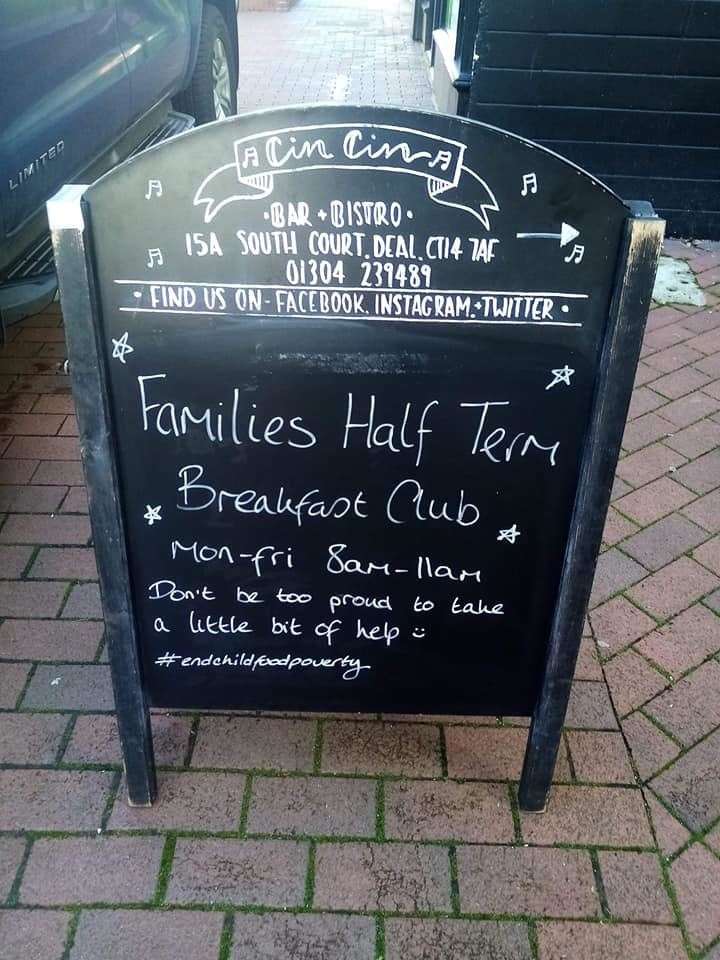 LIMITED
Cin Cin
·BAR + BISTRO·
15A SOUTH COURT. DEAL. CT14 7AF
01304 239489
· FIND US ON - FACEBOOK. INSTAGRAM. + TWITTER ·
Families Half Term
Breakfast Club
Mon-Fri 8am-11am
Don't be too proud to take
a little bit of help :)
#endchildfoodpoverty